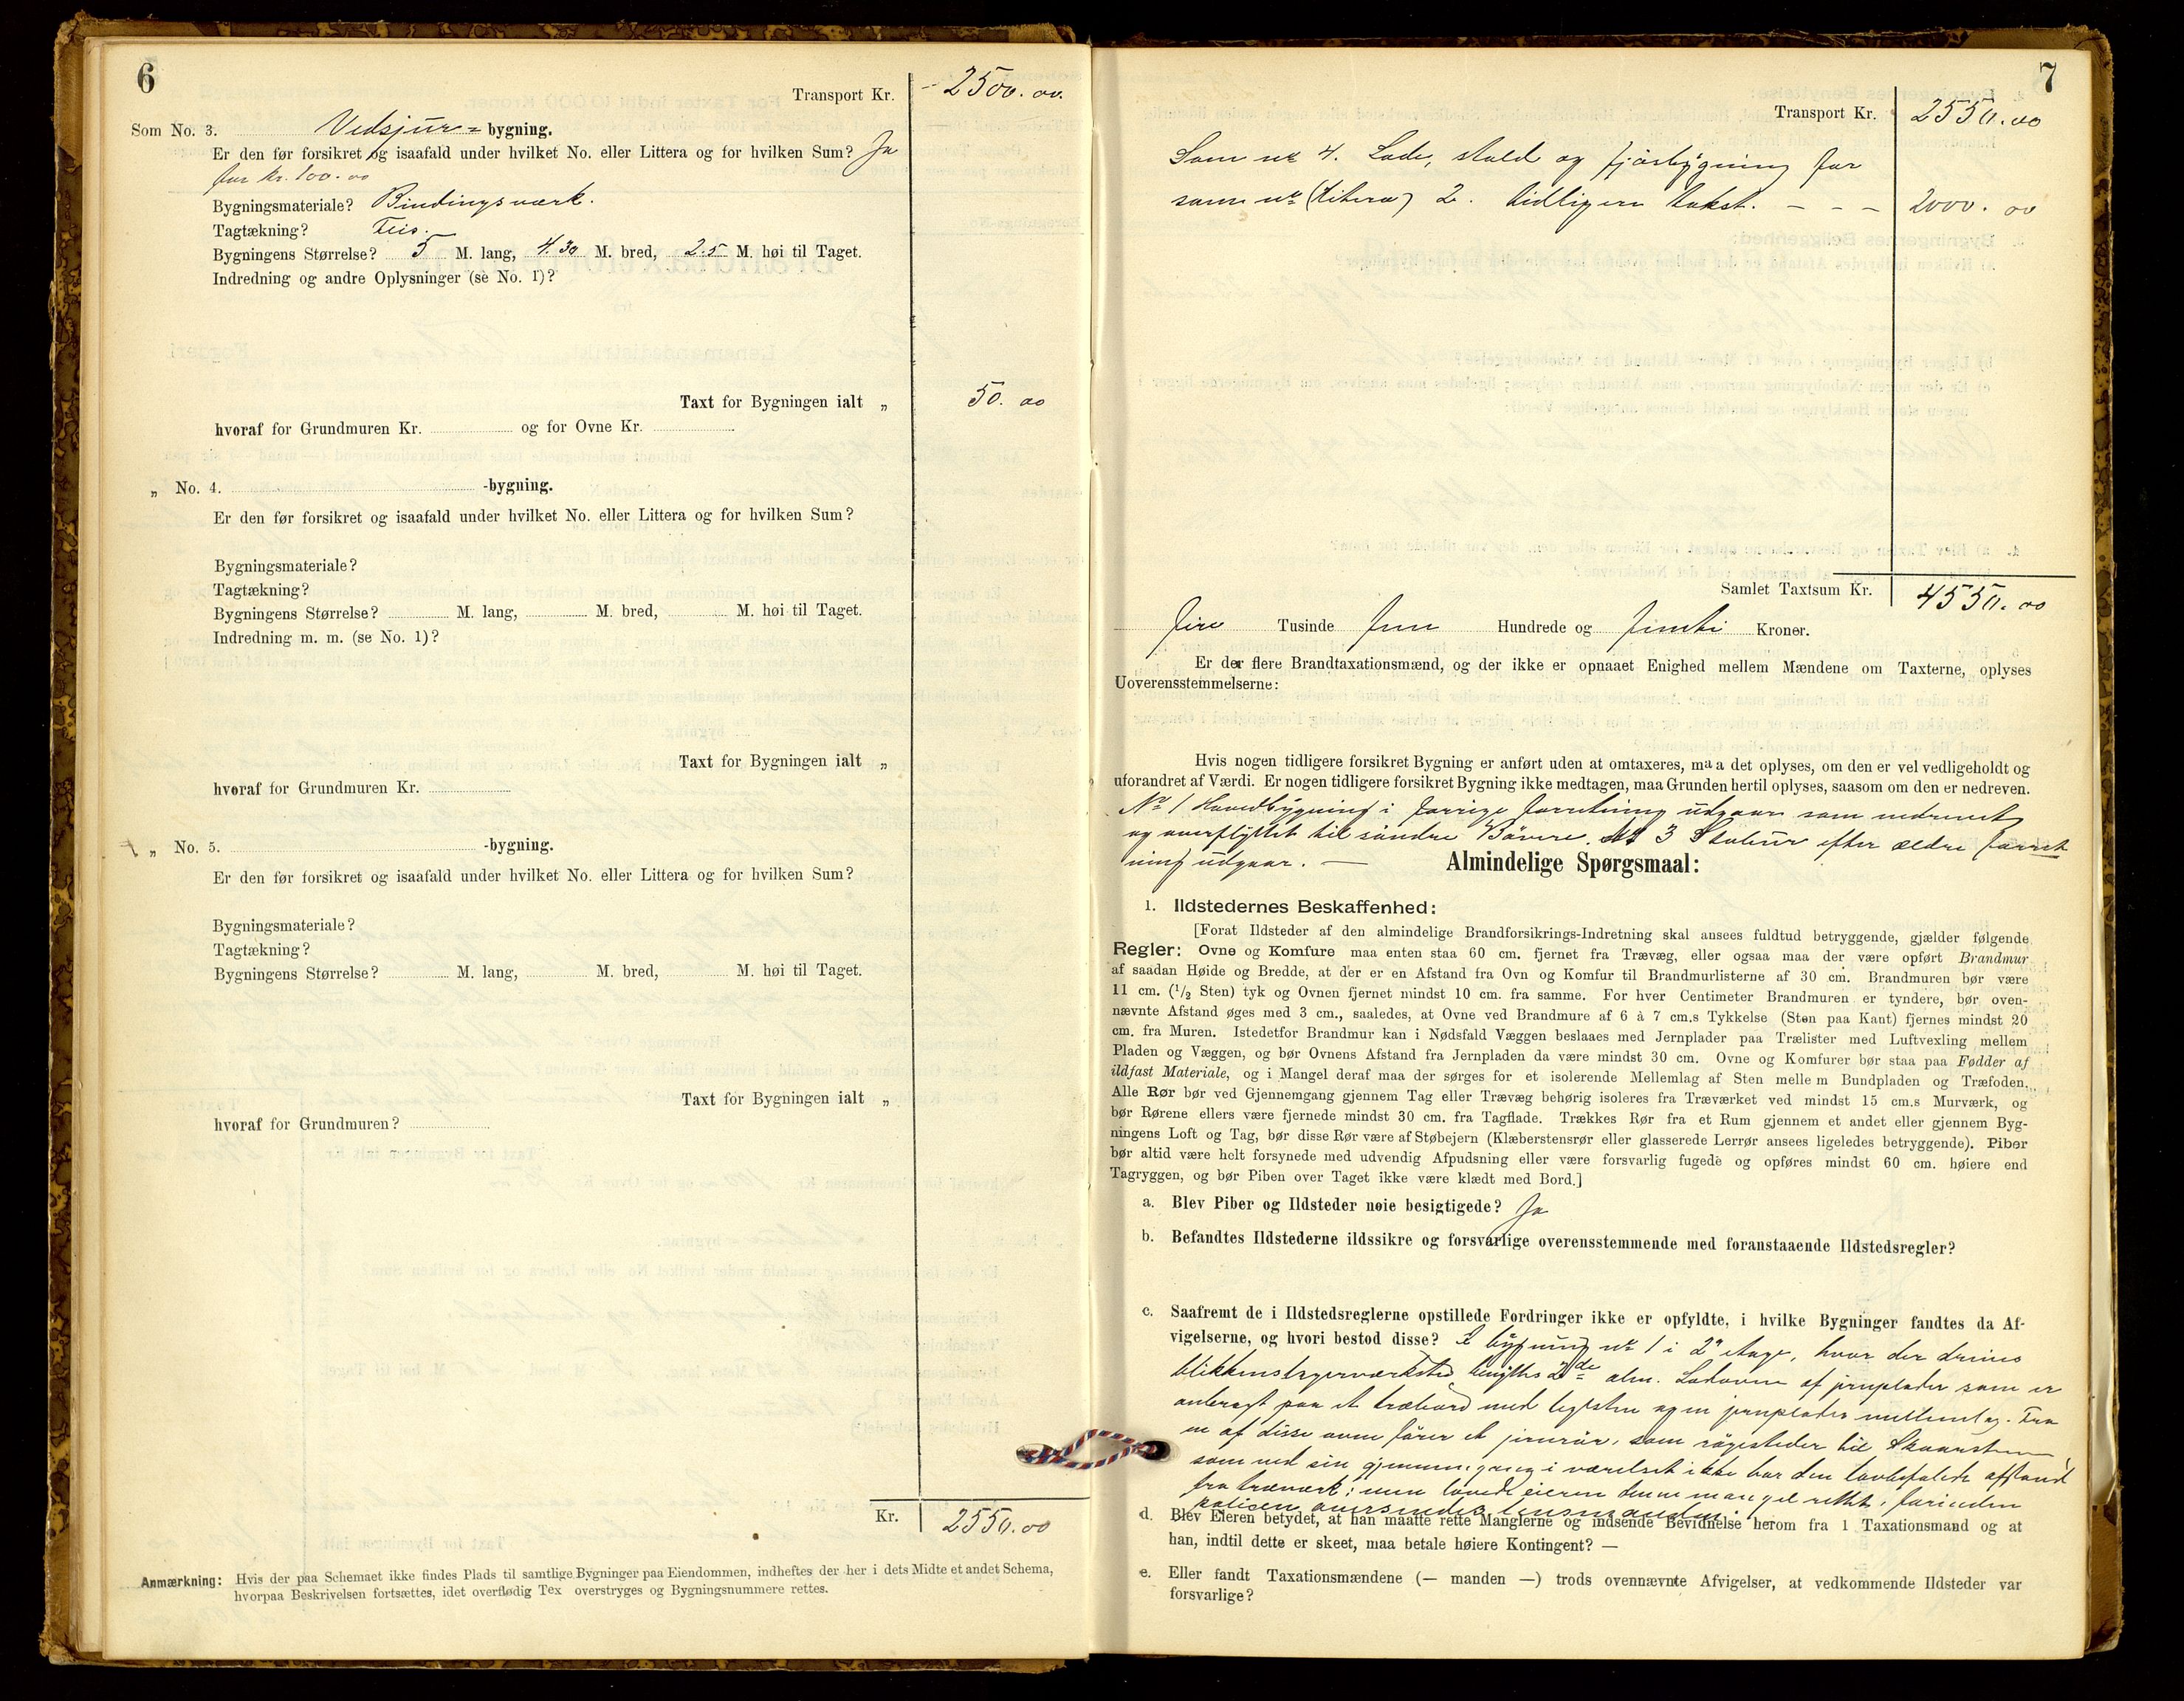 6
Transport Kr. 2500.00.
Som No. 3. Vedsjur=bygning.
Er den før forsikret og isaafald under hvilket No. eller Littera og for hvilken Sum? Ja
for Kr. 100.00
Bygningsmateriale? Bindingsværk.
Tagtækning? Flis.
Bygningens Størrelse? 5 M. lang, 4.30 M. bred, 2.5 M. høi til Taget.
Indredning og andre Oplysninger (se No. 1)?
Taxt for Bygningen ialt „ 50.00
hvoraf for Grundmuren Kr. og for Ovne Kr.
„ No. 4. -bygning.
Er den før forsikret og isaafald under hvilket No. eller Littera og for hvilken Sum?
Bygningsmateriale?
Tagtækning?
Bygningens Størrelse? M. lang, M. bred, M. høi til Taget.
Indredning m. m. (se No. 1)?
Taxt for Bygningen ialt „
hvoraf for Grundmuren Kr.
„ No. 5. -bygning.
Er den før forsikret og isaafald under hvilket No. eller Littera og for hvilken Sum?
Bygningsmateriale?
Tagtækning?
Bygningens Størrelse? M. lang, M. bred, M. høi til Taget.
Taxt for Bygningen ialt „
hvoraf for Grundmuren?
Kr. 2550.00
Anmærkning: Hvis der paa Schemaet ikke findes Plads til samtlige Bygninger paa Eiendommen, indheftes der her i dets Midte et andet Schema,
hvorpaa Beskrivelsen fortsættes, idet overflødig Tex overstryges og Bygningsnummere rettes.
7
Transport Kr. 2550.00
Som no 4. Lade, stald og fjøsbygning for
som no (Litera) 2. tidligere takst. – – – 2000.00
Samlet Taxtsum Kr. 4550.00
Fire Tusinde fem Hundrede og femti Kroner.
Er der flere Brandtaxationsmænd, og der ikke er opnaaet Enighed mellem Mændene om Taxterne, oplyses
Uoverensstemmelserne:
Hvis nogen tidligere forsikret Bygning er anført uden at omtaxeres, maa det oplyses, om den er vel vedligeholdt og
uforandret af Værdi. Er nogen tidligere forsikret Bygning ikke medtagen, maa Grunden hertil oplyses, saasom om den er nedreven.
No 1 Hovedbygning i forrige forretning udgaar som nedrevet
og overflyttet til søndre Bøvere. No 3 Stabur efter ældre forret
ning udgaar. —
Almindelige Spørgsmaal:
1. Ildstedernes Beskaffenhed:
[Forat Ildsteder af den almindelige Brandforsikrings-Indretning skal ansees fuldtud betryggende, gjælder følgende
Regler: Ovne og Komfure maa enten staa 60 cm. fjernet fra Trævæg, eller ogsaa maa der være opført Brandmur
af saadan Høide og Bredde, at der er en Afstand fra Ovn og Komfur til Brandmurlisterne af 30 cm. Brandmuren bør være
11 cm. (1/2 Sten) tyk og Ovnen fjernet mindst 10 cm. fra samme. For hver Centimeter Brandmuren er tyndere, bør oven-
nævnte Afstand øges med 3 cm., saaledes, at Ovne ved Brandmure af 6 à 7 cm.s Tykkelse (Sten paa Kant) fjernes mindst 20
cm. fra Muren. Istedetfor Brandmur kan i Nødsfald Væggen beslaaes med Jernplader paa Trælister med Luftvexling mellem
Pladen og Væggen, og bør Ovnens Afstand fra Jernpladen da være mindst 30 cm. Ovne og Komfurer bør staa paa Fødder af
ildfast Materiale, og i Mangel deraf maa der sørges for et isolerende Mellemlag af Sten mellem Bundpladen og Træfoden.
Alle Rør bør ved Gjennemgang gjennem Tag eller Trævæg behørig isoleres fra Træværket ved mindst 15 cm.s Murværk, og
bør Rørene ellers være fjernede mindst 30 cm. fra Tagflade. Trækkes Rør fra et Rum gjennem et andet eller gjennem Byg-
ningens Loft og Tag, bør disse Rør være af Støbejern (Klæberstensrør eller glasserede Lerrør ansees ligeledes betryggende). Piber
bør altid være helt forsynede med udvendig Afpudsning eller være forsvarlig fugede og opføres mindst 60 cm. høiere end
Tagryggen, og bør Piben over Taget ikke være klædt med Bord.]
a. Blev Piber og Ildsteder nøie besigtigede? Ja
b. Befandtes Ildstederne ildssikre og forsvarlige overensstemmende med foranstaaende Ildstedsregler?
c. Saafremt de i Ildstedsreglerne opstillede Fordringer ikke er opfyldte, i hvilke Bygninger fandtes da Af-
vigelserne, og hvori bestod disse? I bygning no 1 i 2n etage, hvor der drives
blikkenslagerværksted, benyttes 2de alm. Ladovne af jernplader som er
anbragt paa et træbord med teglsten og en jernplades mellemlag. Fra
en af disse ovne fører et jernrør, som røgesteder til Skorsten
som ved sin gjennemgang i værelset ikke har den lovbefalede afstand
fra træværk; men lovede eieren denne mangel rettet, forinden
polisen oversendes lensmanden.
d. Blev Eieren betydet, at han maatte rette Manglerne og indsende Bevidnelse herom fra 1 Taxationsmand og at
han, indtil dette er skeet, maa betale høiere Kontingent? —
e. Eller fandt Taxationsmændene (— manden —) trods ovennævnte Afvigelser, at vedkommende Ildsteder var
forsvarlige?